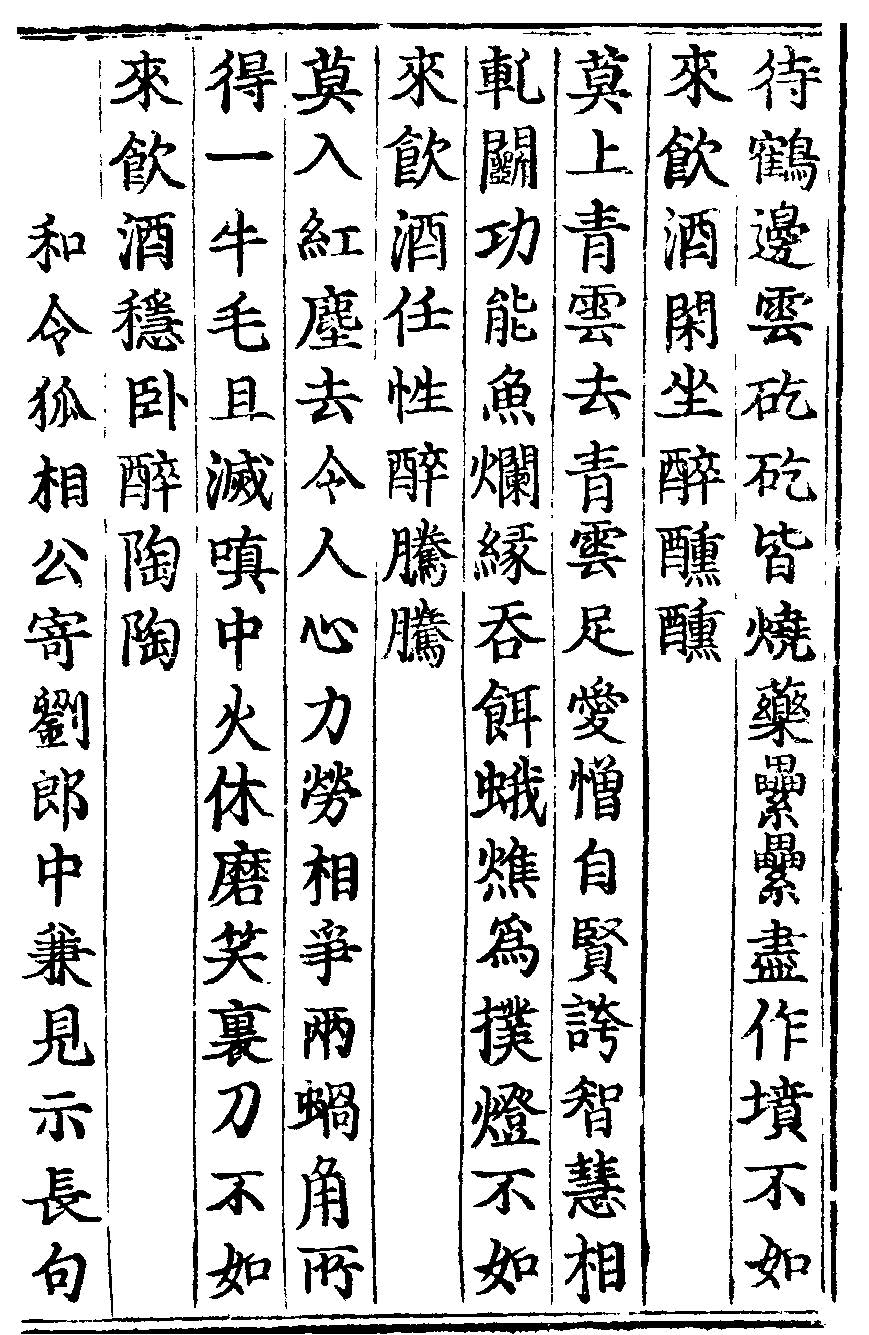 待鶴邊雲矻矻皆燒藥纍纍盡作墳不如
來飲酒閑坐醉醺醺
莫上青雲去青雲足愛憎自賢誇智慧相
軋鬭功能魚爛緣吞餌蛾燋爲撲燈不如
來飲酒任性醉騰騰
莫入紅塵去令人心力勞相爭兩蝸角所
得一牛毛且滅嗔中火休磨笑裏刀不如
來飲酒穩卧醉陶陶
和令狐相公寄劉郎中兼見示長句